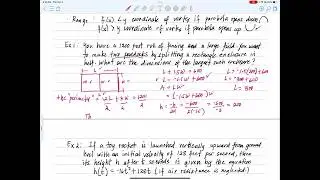 Range f(x) ≤ y coordinate of vertex if parabola opens down
f(x) ≥ y coordinate of vertex if parabola opens up
Ex 1: You have a 1200 foot roll of fencing and a large field. You want
to make two paddocks by splitting a rectangle enclosure in
half. What are the dimensions of the largest such enclosure?
L + 1.5W = 600
L = -1.5W + 600
A = LW
L = -1.5(200) + 600
L = 300
the perimeter = 2L + 3W = 1200
= (-1.5W + 600)W
Th
Ex 2: If a toy rocket is launched vertically upward from ground
level with an initial velocity of 128 feet per second, then
its height h after t seconds is given by the equation
h(t) = -16t² + 128t (if air resistance is neglected)